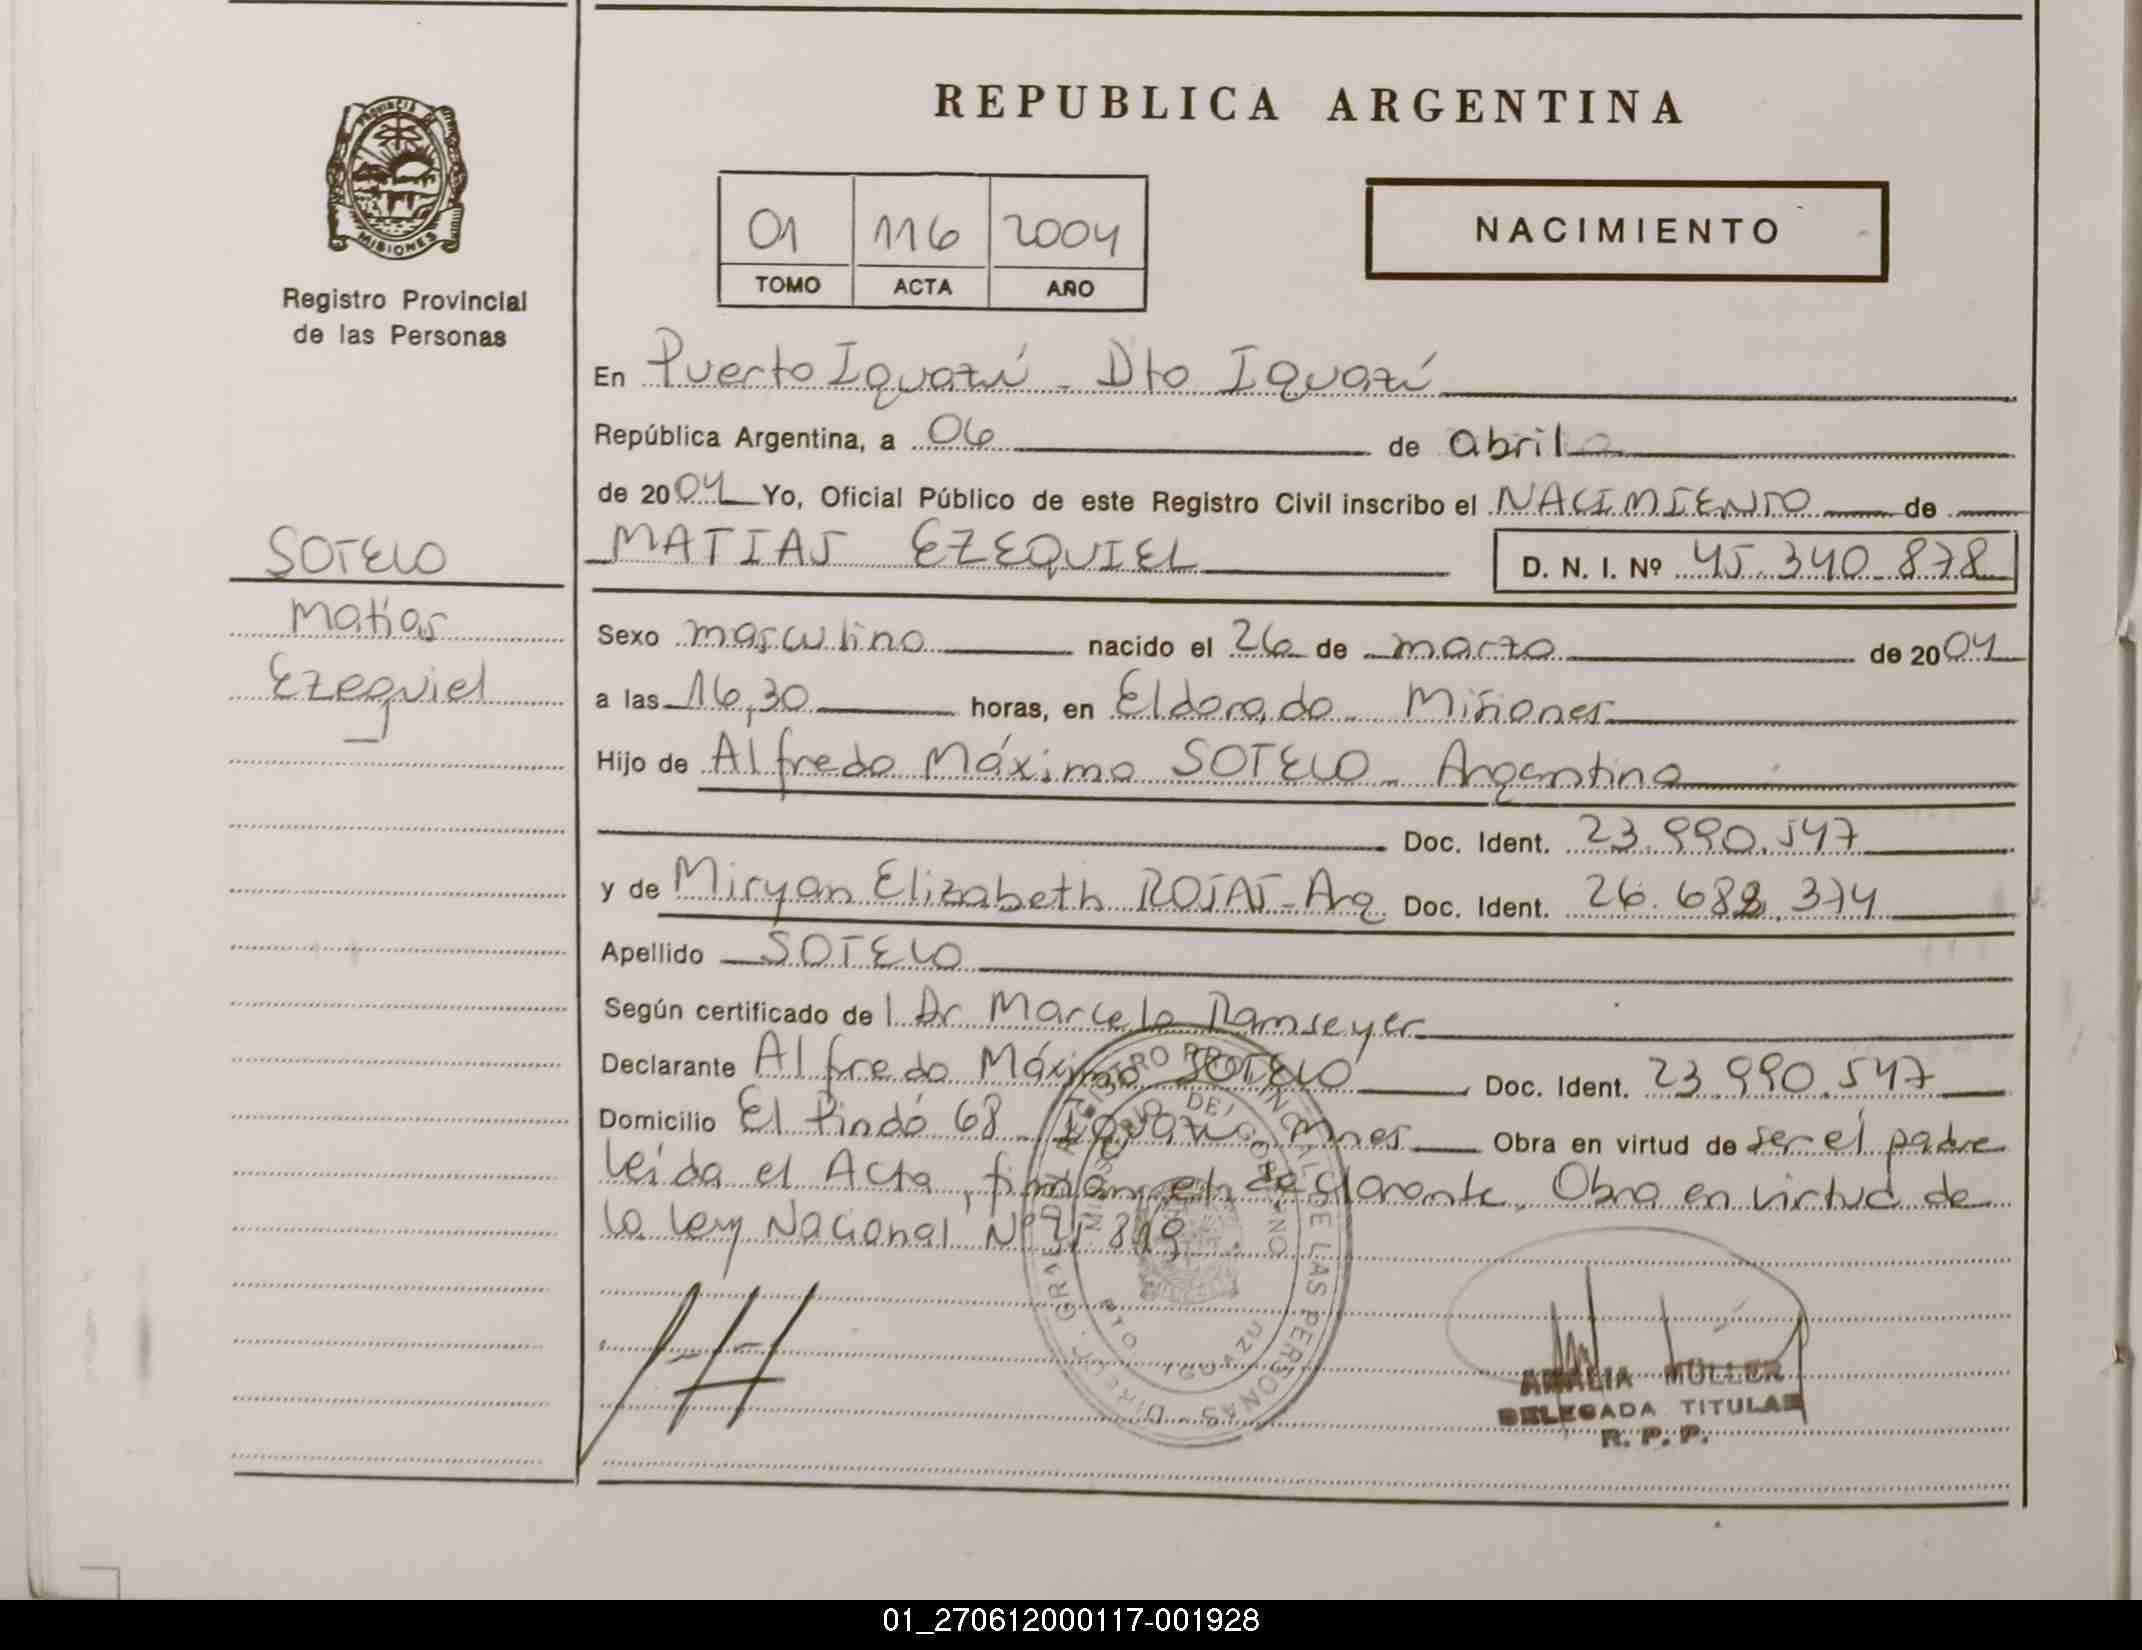 REPUBLICA ARGENTINA
PROVINCIA DE
MISIONES
Registro Provincial
de las Personas
01 116 2004
TOMO ACTA AÑO
NACIMIENTO
En Puerto Iguazú - Dto Iguazú
República Argentina, a 06 de abril
de 2004 Yo, Oficial Público de este Registro Civil inscribo el NACIMIENTO de
MATIAS EZEQUIEL D. N. I. Nº 45.340.878
SOTELO
Matías
Ezequiel
Sexo masculino nacido el 26 de marzo de 2004
a las 16,30 horas, en Eldorado Misiones
Hijo de Alfredo Máximo SOTELO - Argentina
Doc. Ident. 23.990.547
y de Miryan Elizabeth ROJAS - Arg Doc. Ident. 26.688.374
Apellido SOTELO
Según certificado de l Dr Marcelo Ramseyer
Declarante Alfredo Máximo SOTELO Doc. Ident. 23.990.547
Domicilio El Pindó 68 - Iguazú - Mnes Obra en virtud de ser el padre
leída el Acta, firman el declarante. Obra en virtud de
la ley Nacional Nº
DIRECC. GRAL. DEL REGISTRO PROVINCIAL DE LAS PERSONAS
MINISTERIO DE GOBIERNO
PTO IGUAZU
AMALIA MÜLLER
DELEGADA TITULAR
R. P. P.
01_270612000117-001928